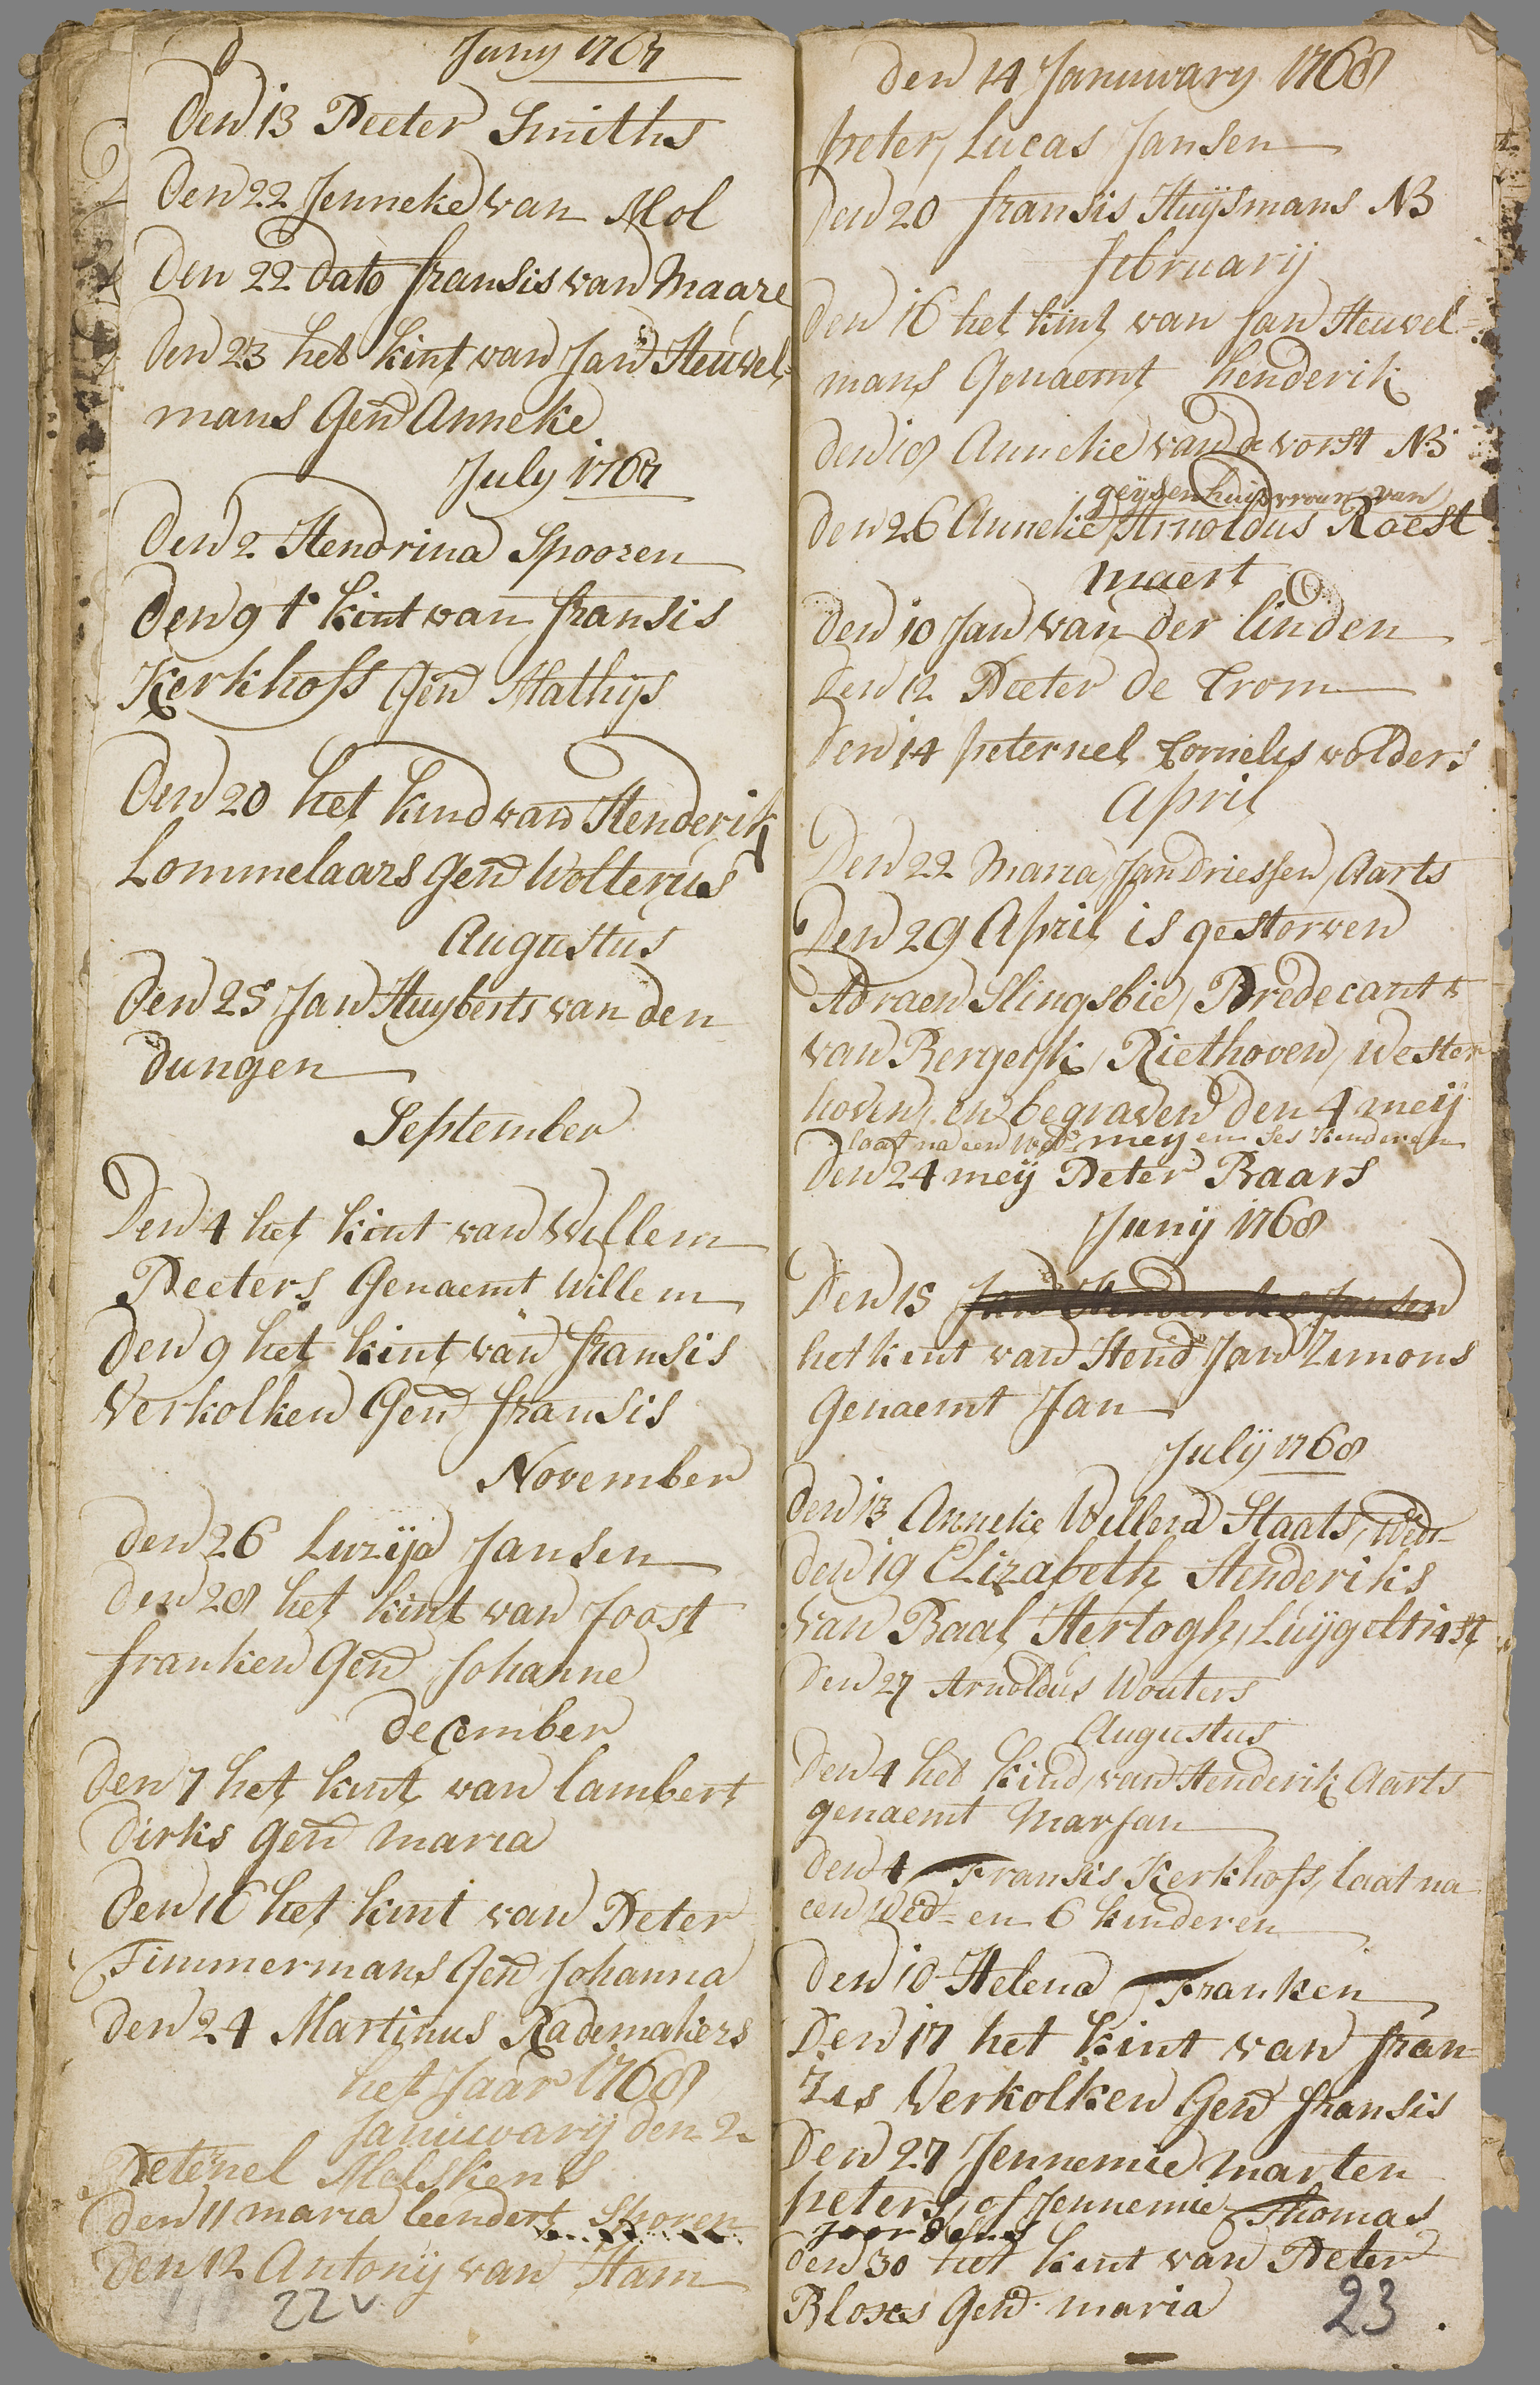 Juny 1767
Den 13 Peeter Smiths
Den 22 Jenneke van Mol
Den 22 dato fransis van Maare
Den 23 het kint van Jan Heuvel=
mans Gend Anneke
July 1767
Den 2 Hendrina Spooren
Den 9 t kint van fransis
Kerkhoff Gend Mathys
Den 20 het kind van Henderik
Lommelaars Gend Wolterus
Augustus
Den 25 Jan Huyberts van den
dungen
September
Den 4 het kint van Willem
Peeters Genaemt Willem
Den 9 het kint van fransis
Verkolken Gend fransis
November
Den 26 Luzija Jansen
Den 28 het kint van Joost
franken Gend Johanne
December
Den 7 het kint van lambert
Dirks Gend maria
Den 16 het kint van Peter
Timmermans Gend Johanna
Den 24 Martinus Rademakers
het Jaar 1768
Januwarij den 2
Peternel Melskens
Den 11 maria leendert Sporen
Den 12 Antonij van Ham
22v.
Den 14 Januwary 1768
peter Lucas Jansen
Den 20 fransis Huijsmans NB
februarij
Den 16 het kint van Jan Heuvel=
mans Genaemt henderik
Den 18 Anneke van de vorst NB
geijsen huisvrouw van
Den 26 Anneke Arnoldus Roest
maert
Den 10 Jan van der linden
Den 12 Peeter de Crom
Den 14 peternel Cornelis wolders
April
Den 22 Maria Jan Driessen Aarts
Den 29 April is gestorven
Adraen Slingsbie, Predecant
van Bergeijk, Riethoven, Wester
hoven, en begraven Den 4 meij
laat na een wed meij en ses kinderen
Den 24 meij Peter Baars
Junij 1768
Den 15 Jan Henderiks Jansen
het kint van Hend Jan Zimons
Genaemt Jan
Julij 1768
Den 13 Anneke Willem Staats, Wedr
Den 19 Elizabeth Henderiks
van Baal Hertogh, Luijgelt
Den 27 Arnoldus Wouters
Augustus
Den 4 het kind van Henderik Aarts
genaemt Marjan
Den 4 Fransis Kerkhofs, laat na
een Wed= en 6 kinderen
Den 10 Helena Franken
Den 17 het kint van fran=
zis Verkolken Gend fransis
Den 27 Jennemie marten
peters, of Jennemie Thomas
Joordens
Den 30 het kint van Peter
Bloxs Gend maria
23